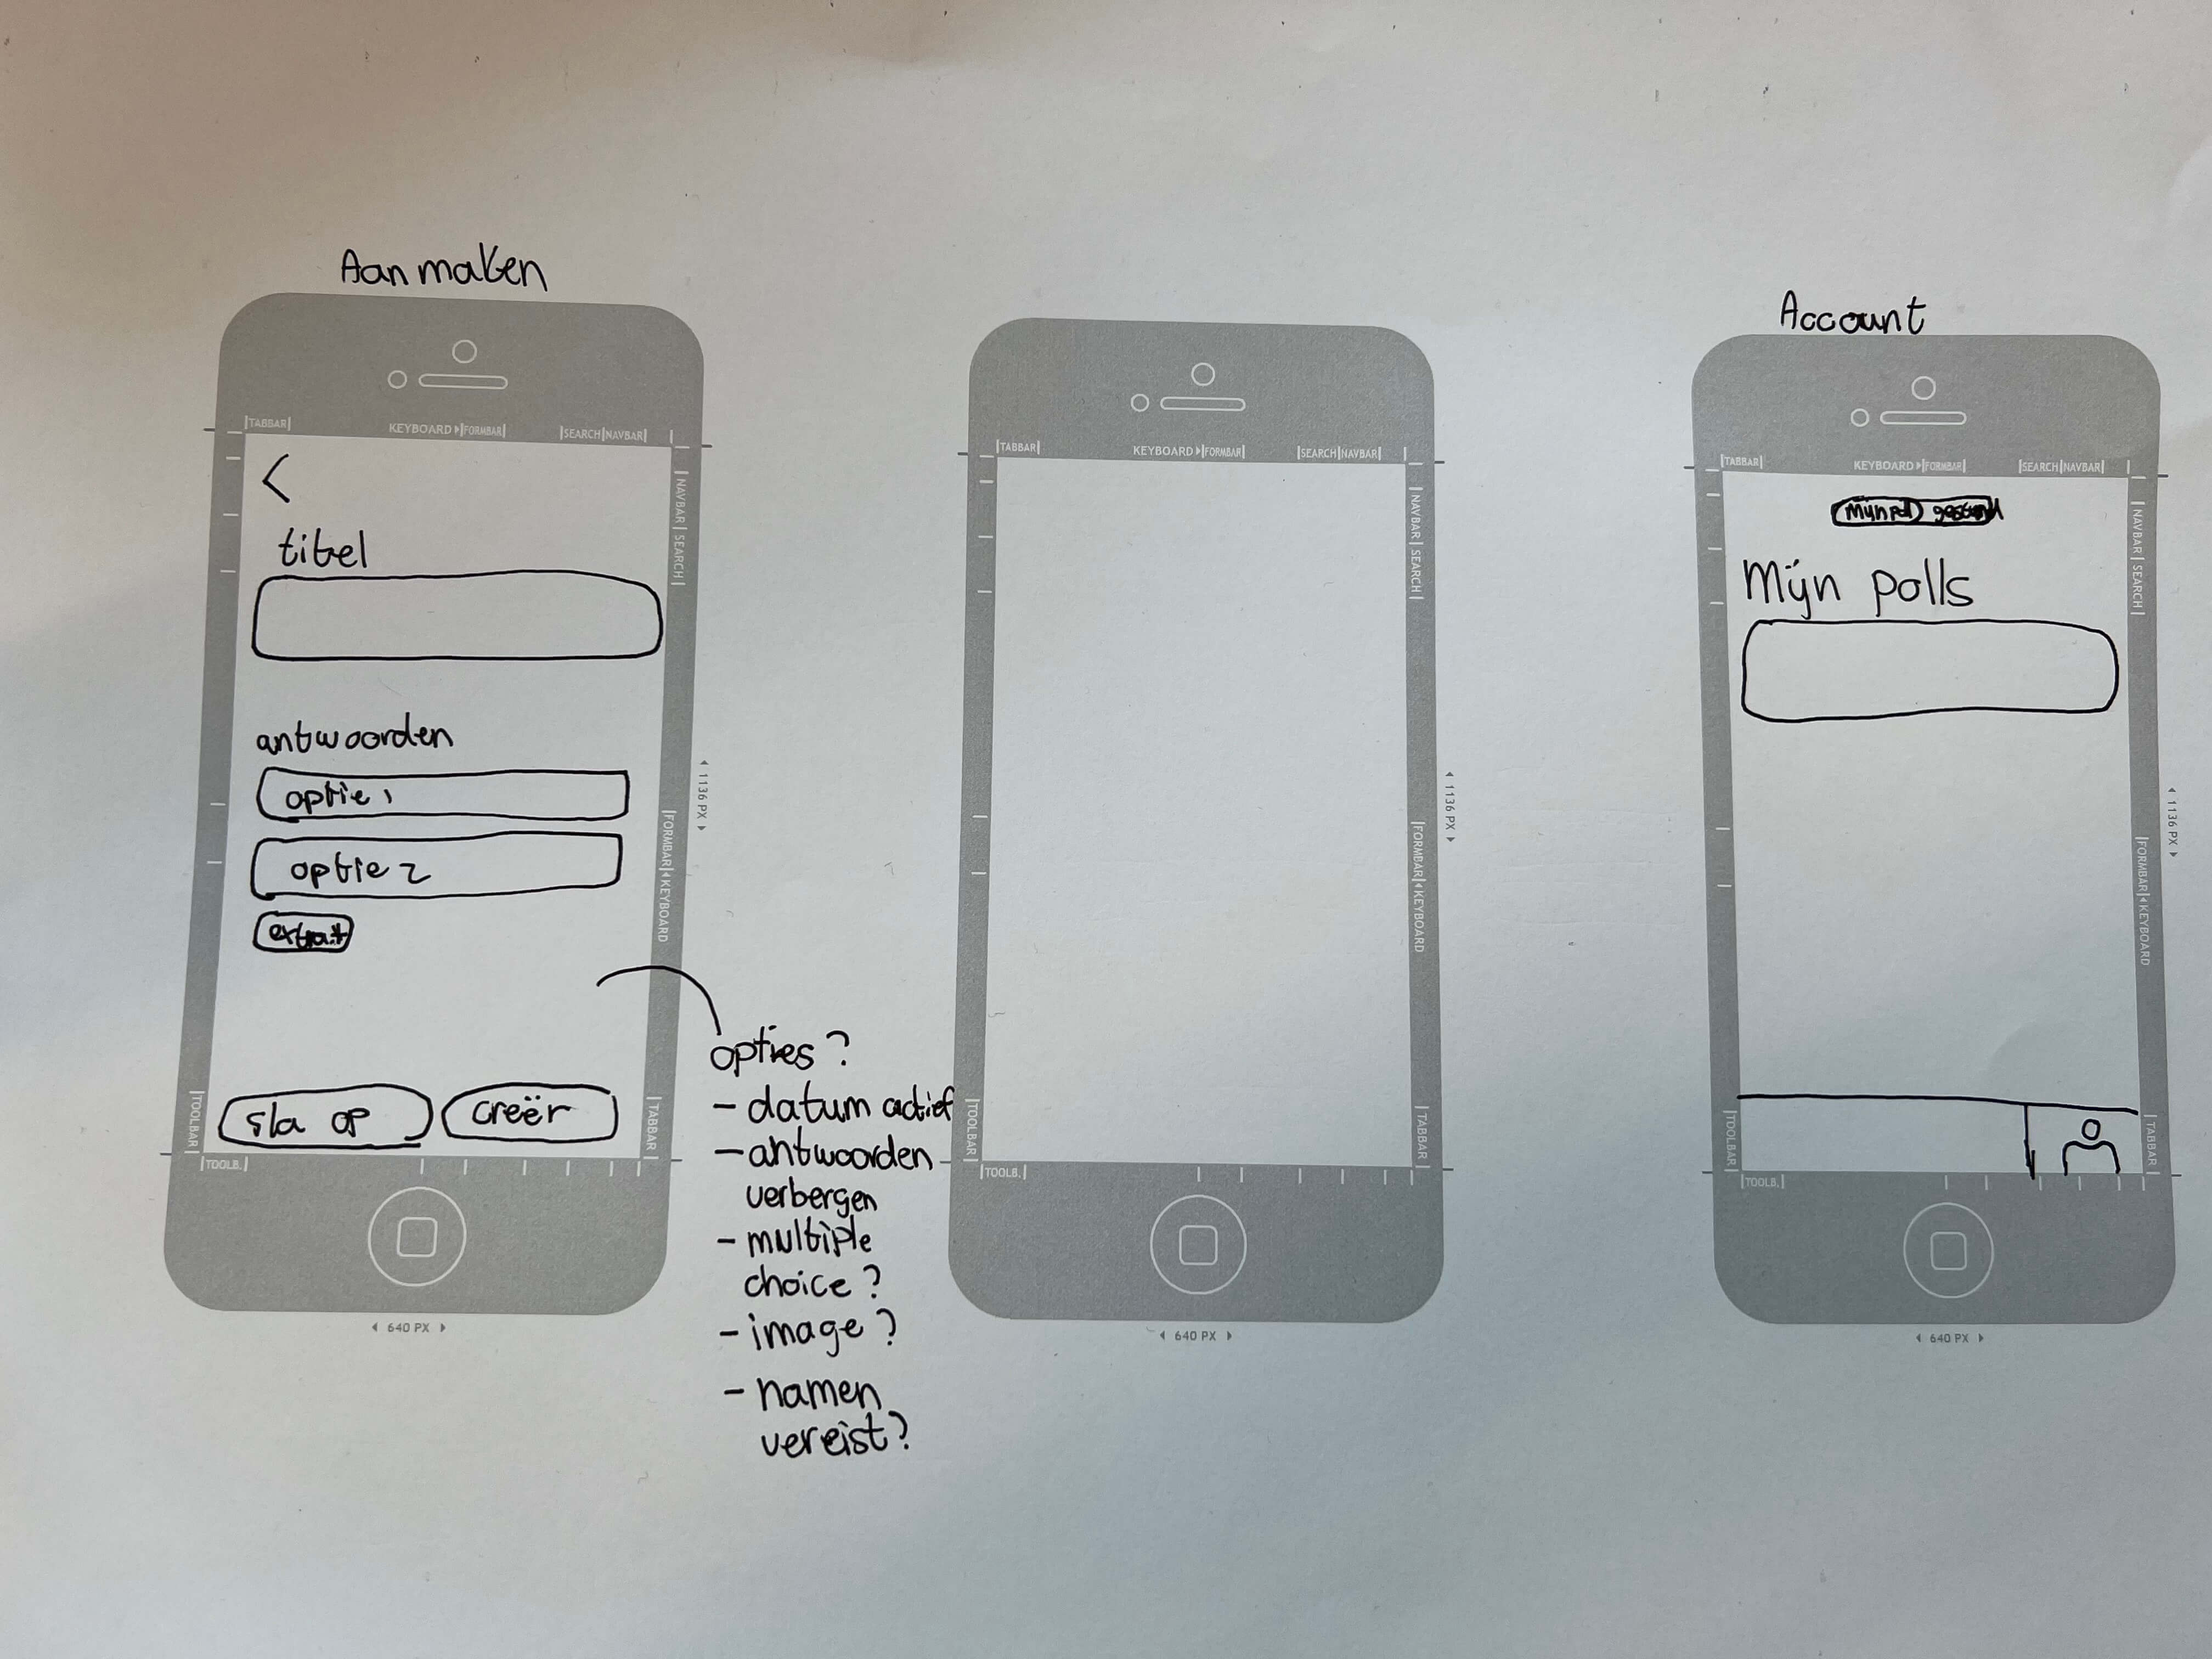 Aanmaken
TABBAR
KEYBOARD
FORMBAR
SEARCH
NAVBAR
NAVBAR
SEARCH
<
titel
antwoorden
optie 1
optie 2
extra +
sla op
creër
1136 PX
FORMBAR
KEYBOARD
TOOLBAR
TABBAR
TOOLB.
640 PX
opties?
- datum actief
- antwoorden
verbergen
- multiple
choice?
- image?
- namen
vereist?
TABBAR
KEYBOARD
FORMBAR
SEARCH
NAVBAR
NAVBAR
SEARCH
1136 PX
FORMBAR
KEYBOARD
TOOLBAR
TABBAR
TOOLB.
640 PX
Account
TABBAR
KEYBOARD
FORMBAR
SEARCH
NAVBAR
NAVBAR
SEARCH
Mijn poll
Mijn polls
1136 PX
FORMBAR
KEYBOARD
TOOLBAR
TABBAR
TOOLB.
640 PX